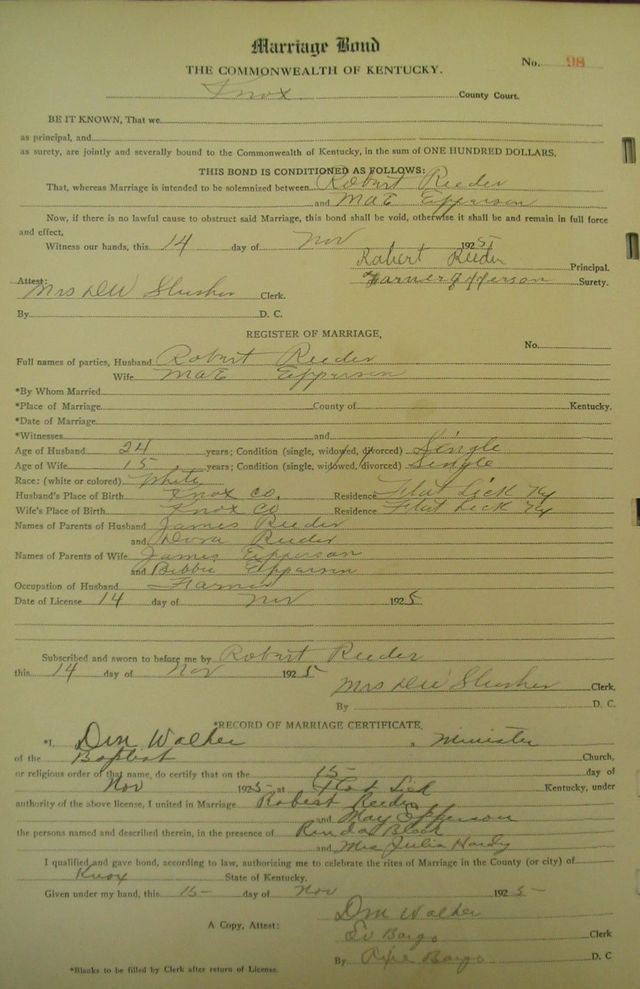 Marriage Bond
No. 98
THE COMMONWEALTH OF KENTUCKY.
Knox County Court.
BE IT KNOWN, That we
as principal, and
as surety, are jointly and severally bound to the Commonwealth of Kentucky, in the sum of ONE HUNDRED DOLLARS.
THIS BOND IS CONDITIONED AS FOLLOWS:
That, whereas Marriage is intended to be solemnized between Robert Reeder
and Mae Epperson
Now, if there is no lawful cause to obstruct said Marriage, this bond shall be void, otherwise it shall be and remain in full force
and effect,
Witness our hands, this 14 day of Nov 1925
Robert Reeder Principal.
Epperson Surety.
Attest:
Mrs DW Slusher Clerk.
By D. C.
REGISTER OF MARRIAGE,
No.
Full names of parties, Husband Robert Reeder
Wife Mae Epperson
*By Whom Married
*Place of Marriage County of Kentucky.
*Date of Marriage
*Witnesses and
Age of Husband 24 years; Condition (single, widowed, divorced) Single
Age of Wife 15 years; Condition (single, widowed, divorced) Single
Race: (white or colored) White
Husband's Place of Birth Knox Co, Residence Flat Lick Ky
Wife's Place of Birth Knox Co Residence Flat Lick Ky
Names of Parents of Husband James Reeder
and Dora Reeder
Names of Parents of Wife James Epperson
and Bebbie Epperson
Occupation of Husband Farmer
Date of License 14 day of Nov 1925
Subscribed and sworn to before me by Robert Reeder
this 14 day of Nov 1925
Mrs DW Slusher Clerk.
By D. C.
*RECORD OF MARRIAGE CERTIFICATE,
*I, Dm Walker, Minister
of the Baptist Church,
or religious order of that name, do certify that on the 15- day of
Nov 1925- at Flat Lick Kentucky, under
authority of the above license, I united in Marriage Robert Reeder
and May Epperson
the persons named and described therein, in the presence of Rinda Black
and Mrs Julia Hardy
I qualified and gave bond, according to law, authorizing me to celebrate the rites of Marriage in the County (or city) of
Knox State of Kentucky.
Given under my hand, this 15- day of Nov 1925-
Dm Walker
A Copy, Attest: Ev Bargo Clerk
By Bargo D. C
*Blanks to be filled by Clerk after return of License.